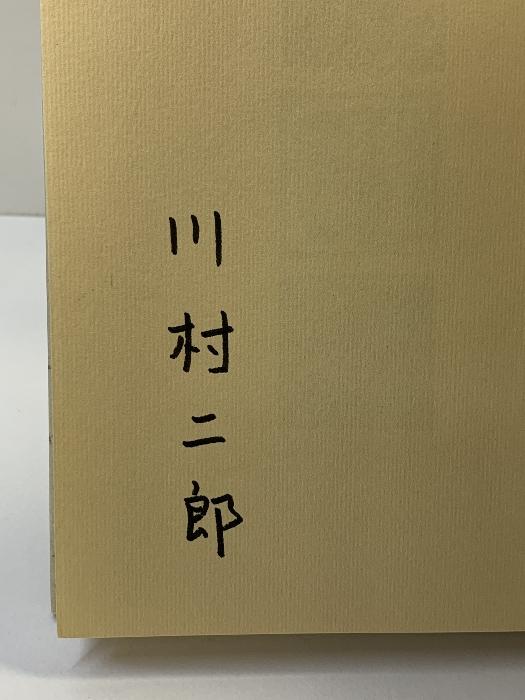 川村二郎